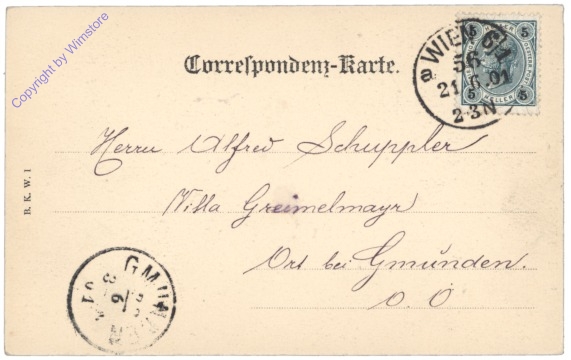 Copyright by Wimstore
Correspondenz-Karte.
WIEN 6/1
56
21.6.01
2-3N
5 5
HELLER
5 5
Herrn Alfred Schuppler
Villa Greimelmayr
Ort bei Gmünden.
O. Ö
B. K. W. I
GMUNDEN
6
01